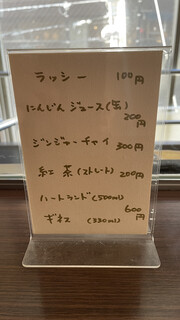 ラッシー 100円
にんじんジュース(缶) 200円
ジンジャーチャイ 300円
紅茶(ストレート) 200円
ハートランド(500ml) 600円
ギネス(330ml)